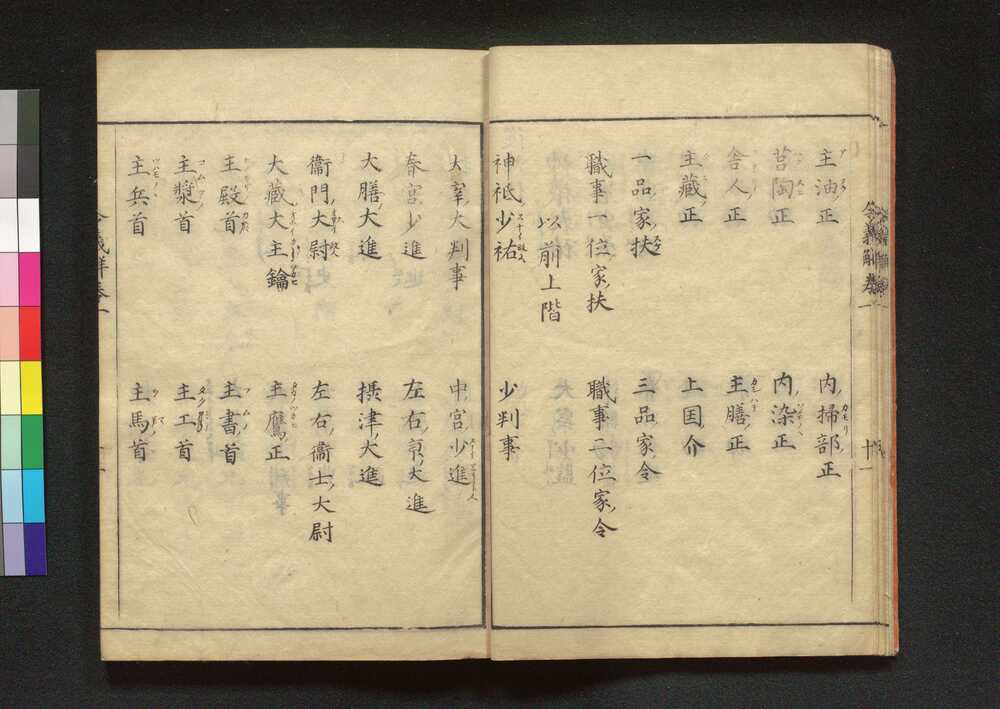 令義解卷一
十一
主油正 内掃部正
筥陶正 内染正
舎人正 主膳正
主藏正 上国介
一品家扶 三品家令
職事一位家扶 職事二位家令
以前上階
神祇少祐 少判事
太宰大判事 中宮少進
春宮少進 左右京大進
大膳大進 摂津大進
衞門大尉 左右衞士大尉
大藏大主鑰 主鷹正
主殿首 主書首
主漿首 主工首
主兵首 主馬首